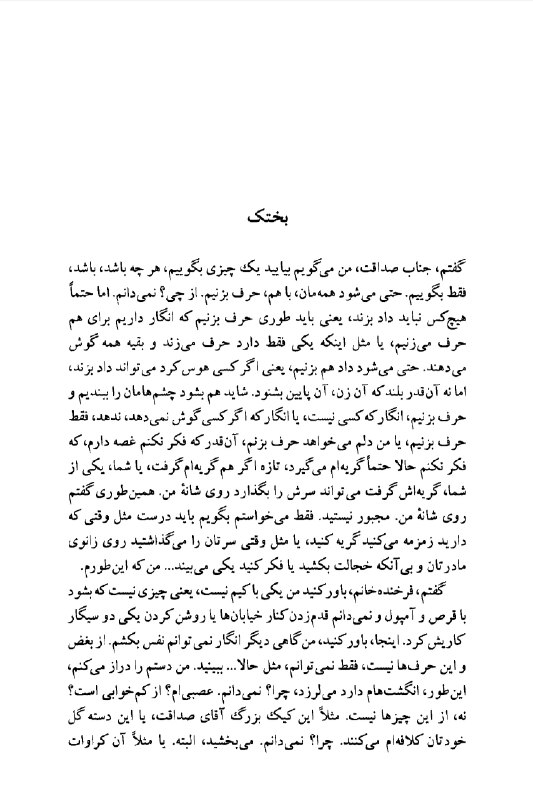 بختک
گفتم، جناب صداقت، من می‌گویم بیایید یک چیزی بگوییم، هر چه باشد، باشد،
فقط بگوییم. حتی می‌شود همه‌مان، با هم، حرف بزنیم. از چی؟ نمی‌دانم. اما حتماً
هیچ‌کس نباید داد بزند، یعنی باید طوری حرف بزنیم که انگار داریم برای هم
حرف می‌زنیم، یا مثل اینکه یکی فقط دارد حرف می‌زند و بقیه همه گوش
می‌دهند. حتی می‌شود داد هم بزنیم، یعنی اگر کسی هوس کرد می‌تواند داد بزند،
اما نه آن‌قدر بلند که آن زن، آن پایین بشنود. شاید هم بشود چشم‌هامان را ببندیم و
حرف بزنیم، انگار که کسی نیست، یا انگار که اگر کسی گوش نمی‌دهد، ندهد، فقط
حرف بزنیم، یا من دلم می‌خواهد حرف بزنم، آن‌قدر که فکر نکنم غصه دارم، که
فکر نکنم حالا حتماً گریه‌ام می‌گیرد، تازه اگر هم گریه‌ام گرفت، یا شما، یکی از
شما، گریه‌اش گرفت می‌تواند سرش را بگذارد روی شانهٔ من. همین‌طوری گفتم
روی شانهٔ من. مجبور نیستید. فقط می‌خواستم بگویم باید درست مثل وقتی که
دارید زمزمه می‌کنید گریه کنید، یا مثل وقتی سرتان را می‌گذاشتید روی زانوی
مادرتان و بی‌آنکه خجالت بکشید یا فکر کنید یکی می‌بیند... من که این‌طورم.
گفتم، فرخنده‌خانم، باور کنید من یکی با کیم نیست، یعنی چیزی نیست که بشود
با قرص و آمپول و نمی‌دانم قدم‌زدن کنار خیابان‌ها یا روشن کردن یکی دو سیگار
کاریش کرد. اینجا، باور کنید، من گاهی دیگر انگار نمی‌توانم نفس بکشم. از بغض
و این حرف‌ها نیست، فقط نمی‌توانم، مثل حالا... ببینید. من دستم را دراز می‌کنم،
این‌طور، انگشت‌هام دارد می‌لرزد، چرا؟ نمی‌دانم. عصبی‌ام؟ از کم‌خوابی است؟
نه، از این چیزها نیست. مثلاً این کیک بزرگ آقای صداقت، یا این دسته گل
خودتان کلافه‌ام می‌کنند. چرا؟ نمی‌دانم. می‌بخشید، البته. یا مثلاً آن کراوات